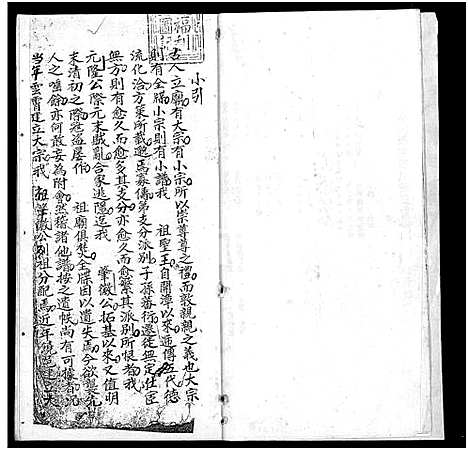 小引
古人立廟有大宗有小宗所以崇尊尊之禮而敦親親之義也大宗
則有全牒小宗則有小譜我　祖聖王自開漳以來遞傳五代德
流化洽方策所載迄焉第支分派別子孫蕃衍遷徙無定仕宦
無方則有愈久而愈多其支分亦愈久而愈繁其派別所恨者我
元隆公際元末賊亂合家逃隱迄我　肇徽公拓基以來又值明
末清初之際寇盜屢作　祖廟俱焚全牒因以遺失焉今欲襲先
人之唾餘亦何敢妄為附會然稽諸他譜按之遺帙尚有可據者
当年雲霄建立大宗我　祖肇徽公列祖分配焉近年饒邑建立大